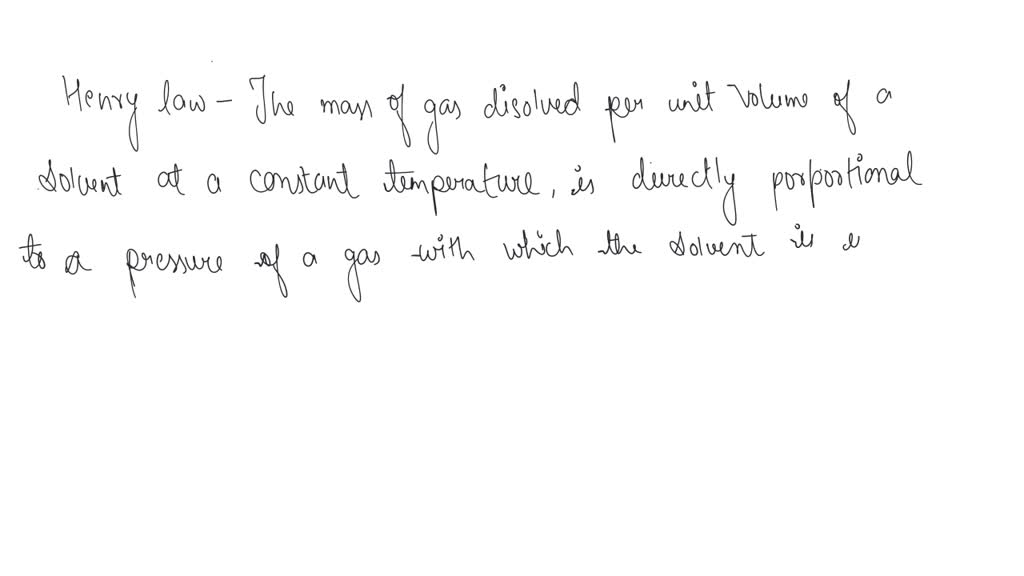 Henry law - The mass of gas disolved per unit volume of a
solvent at a constant temperature, is directly porportional
to a pressure of a gas with which the solvent is e